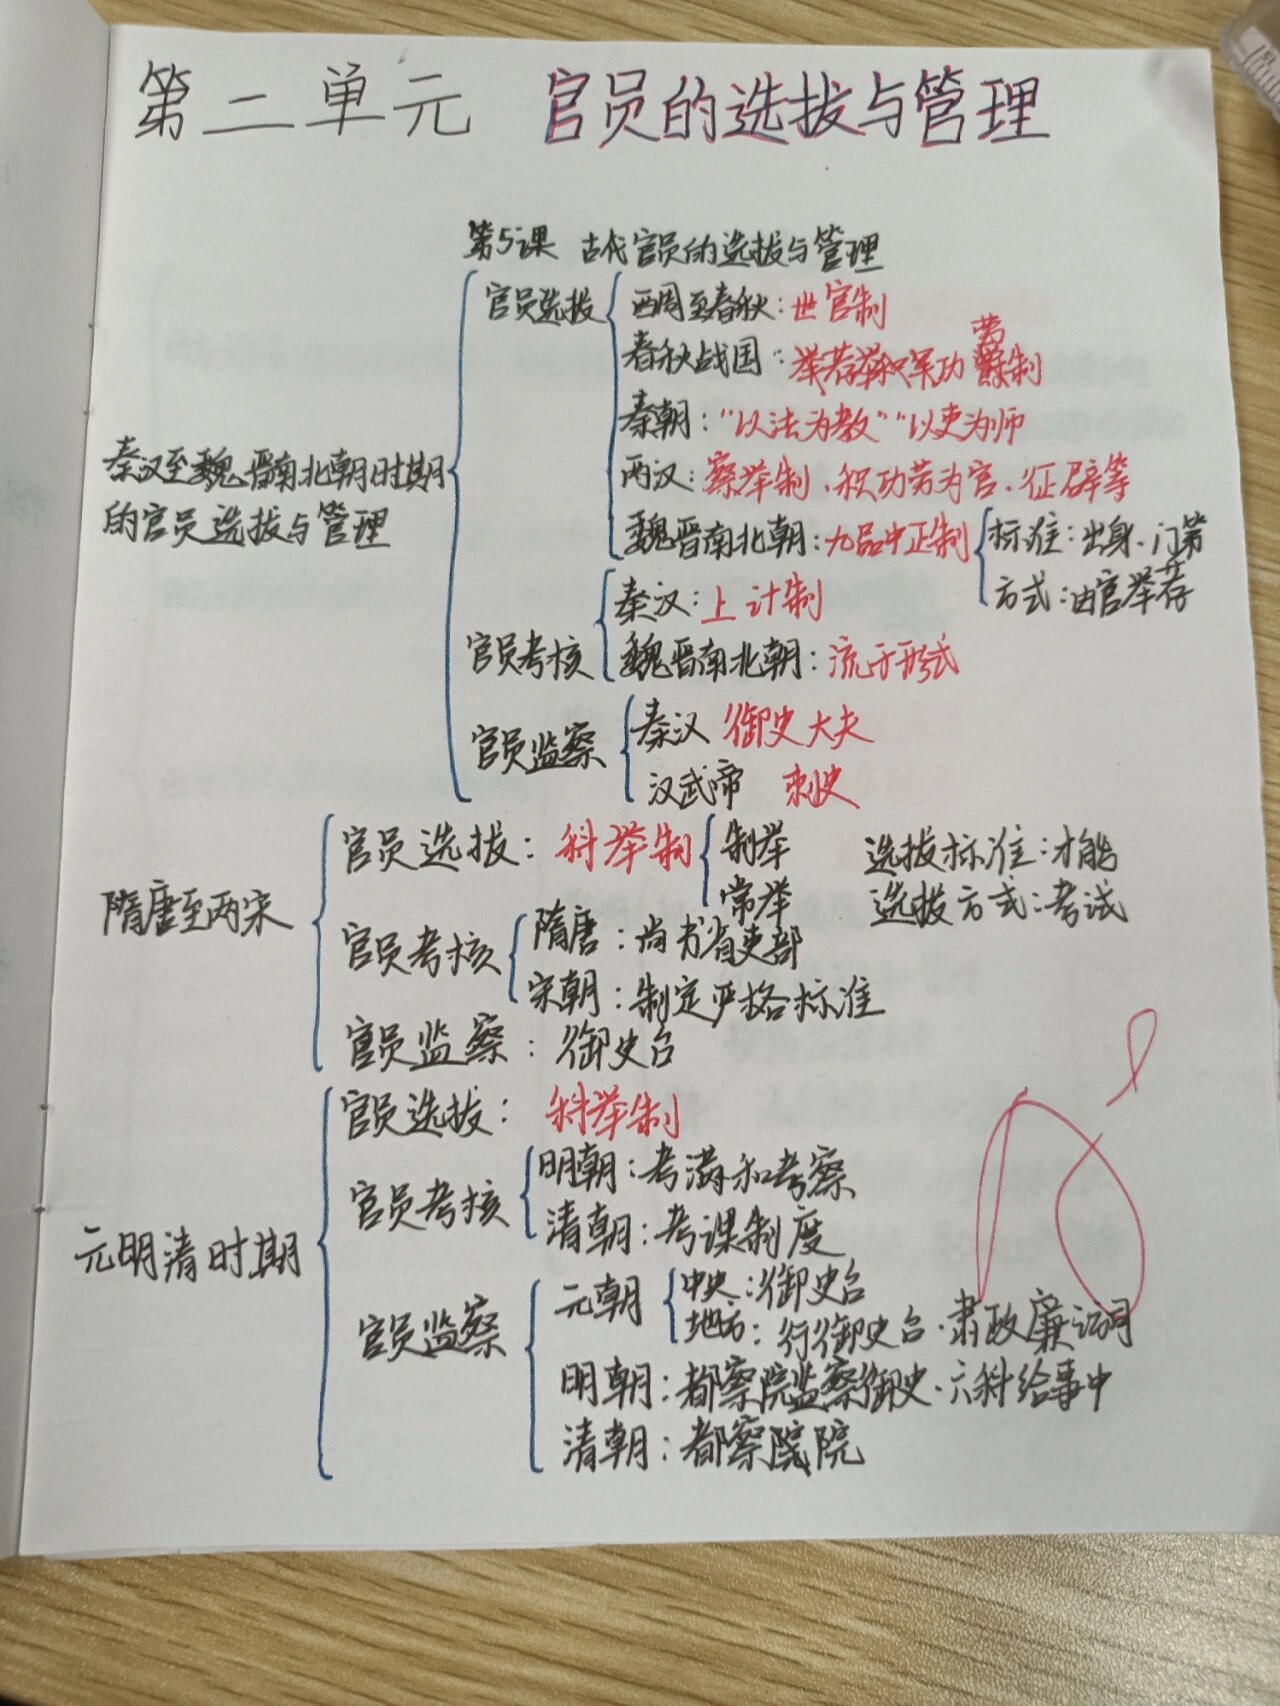 第二单元 官员的选拔与管理
第5课 古代官员的选拔与管理
秦汉至魏晋南北朝时期
的官员选拔与管理
官员选拔
西周至春秋:世官制
春秋战国:举荐和军功爵制
劳
秦朝:"以法为教""以吏为师
两汉:察举制、积功劳为官、征辟等
魏晋南北朝:九品中正制
标准:出身、门第
方式:由官举荐
官员考核
秦汉:上计制
魏晋南北朝:流于形式
官员监察
秦汉 御史大夫
汉武帝 刺史
隋唐至两宋
官员选拔:科举制
制举
常举
选拔标准:才能
选拔方式:考试
官员考核
隋唐:尚书省吏部
宋朝:制定严格标准
官员监察:御史台
元明清时期
官员选拔:科举制
官员考核
明朝:考满和考察
清朝:考课制度
官员监察
元朝
中央:御史台
地方:行御史台、肃政廉访司
明朝:都察院监察御史、六科给事中
清朝:都察院院